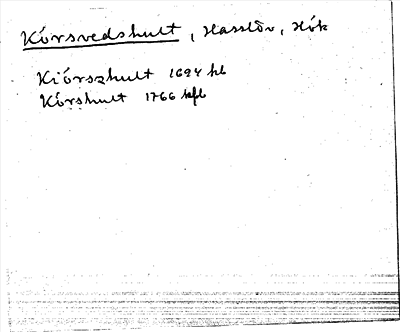 Kórsvedshult, Hasslöv, Hök
Kiórszhult 1694 hb
Kórshult 1766 kfb